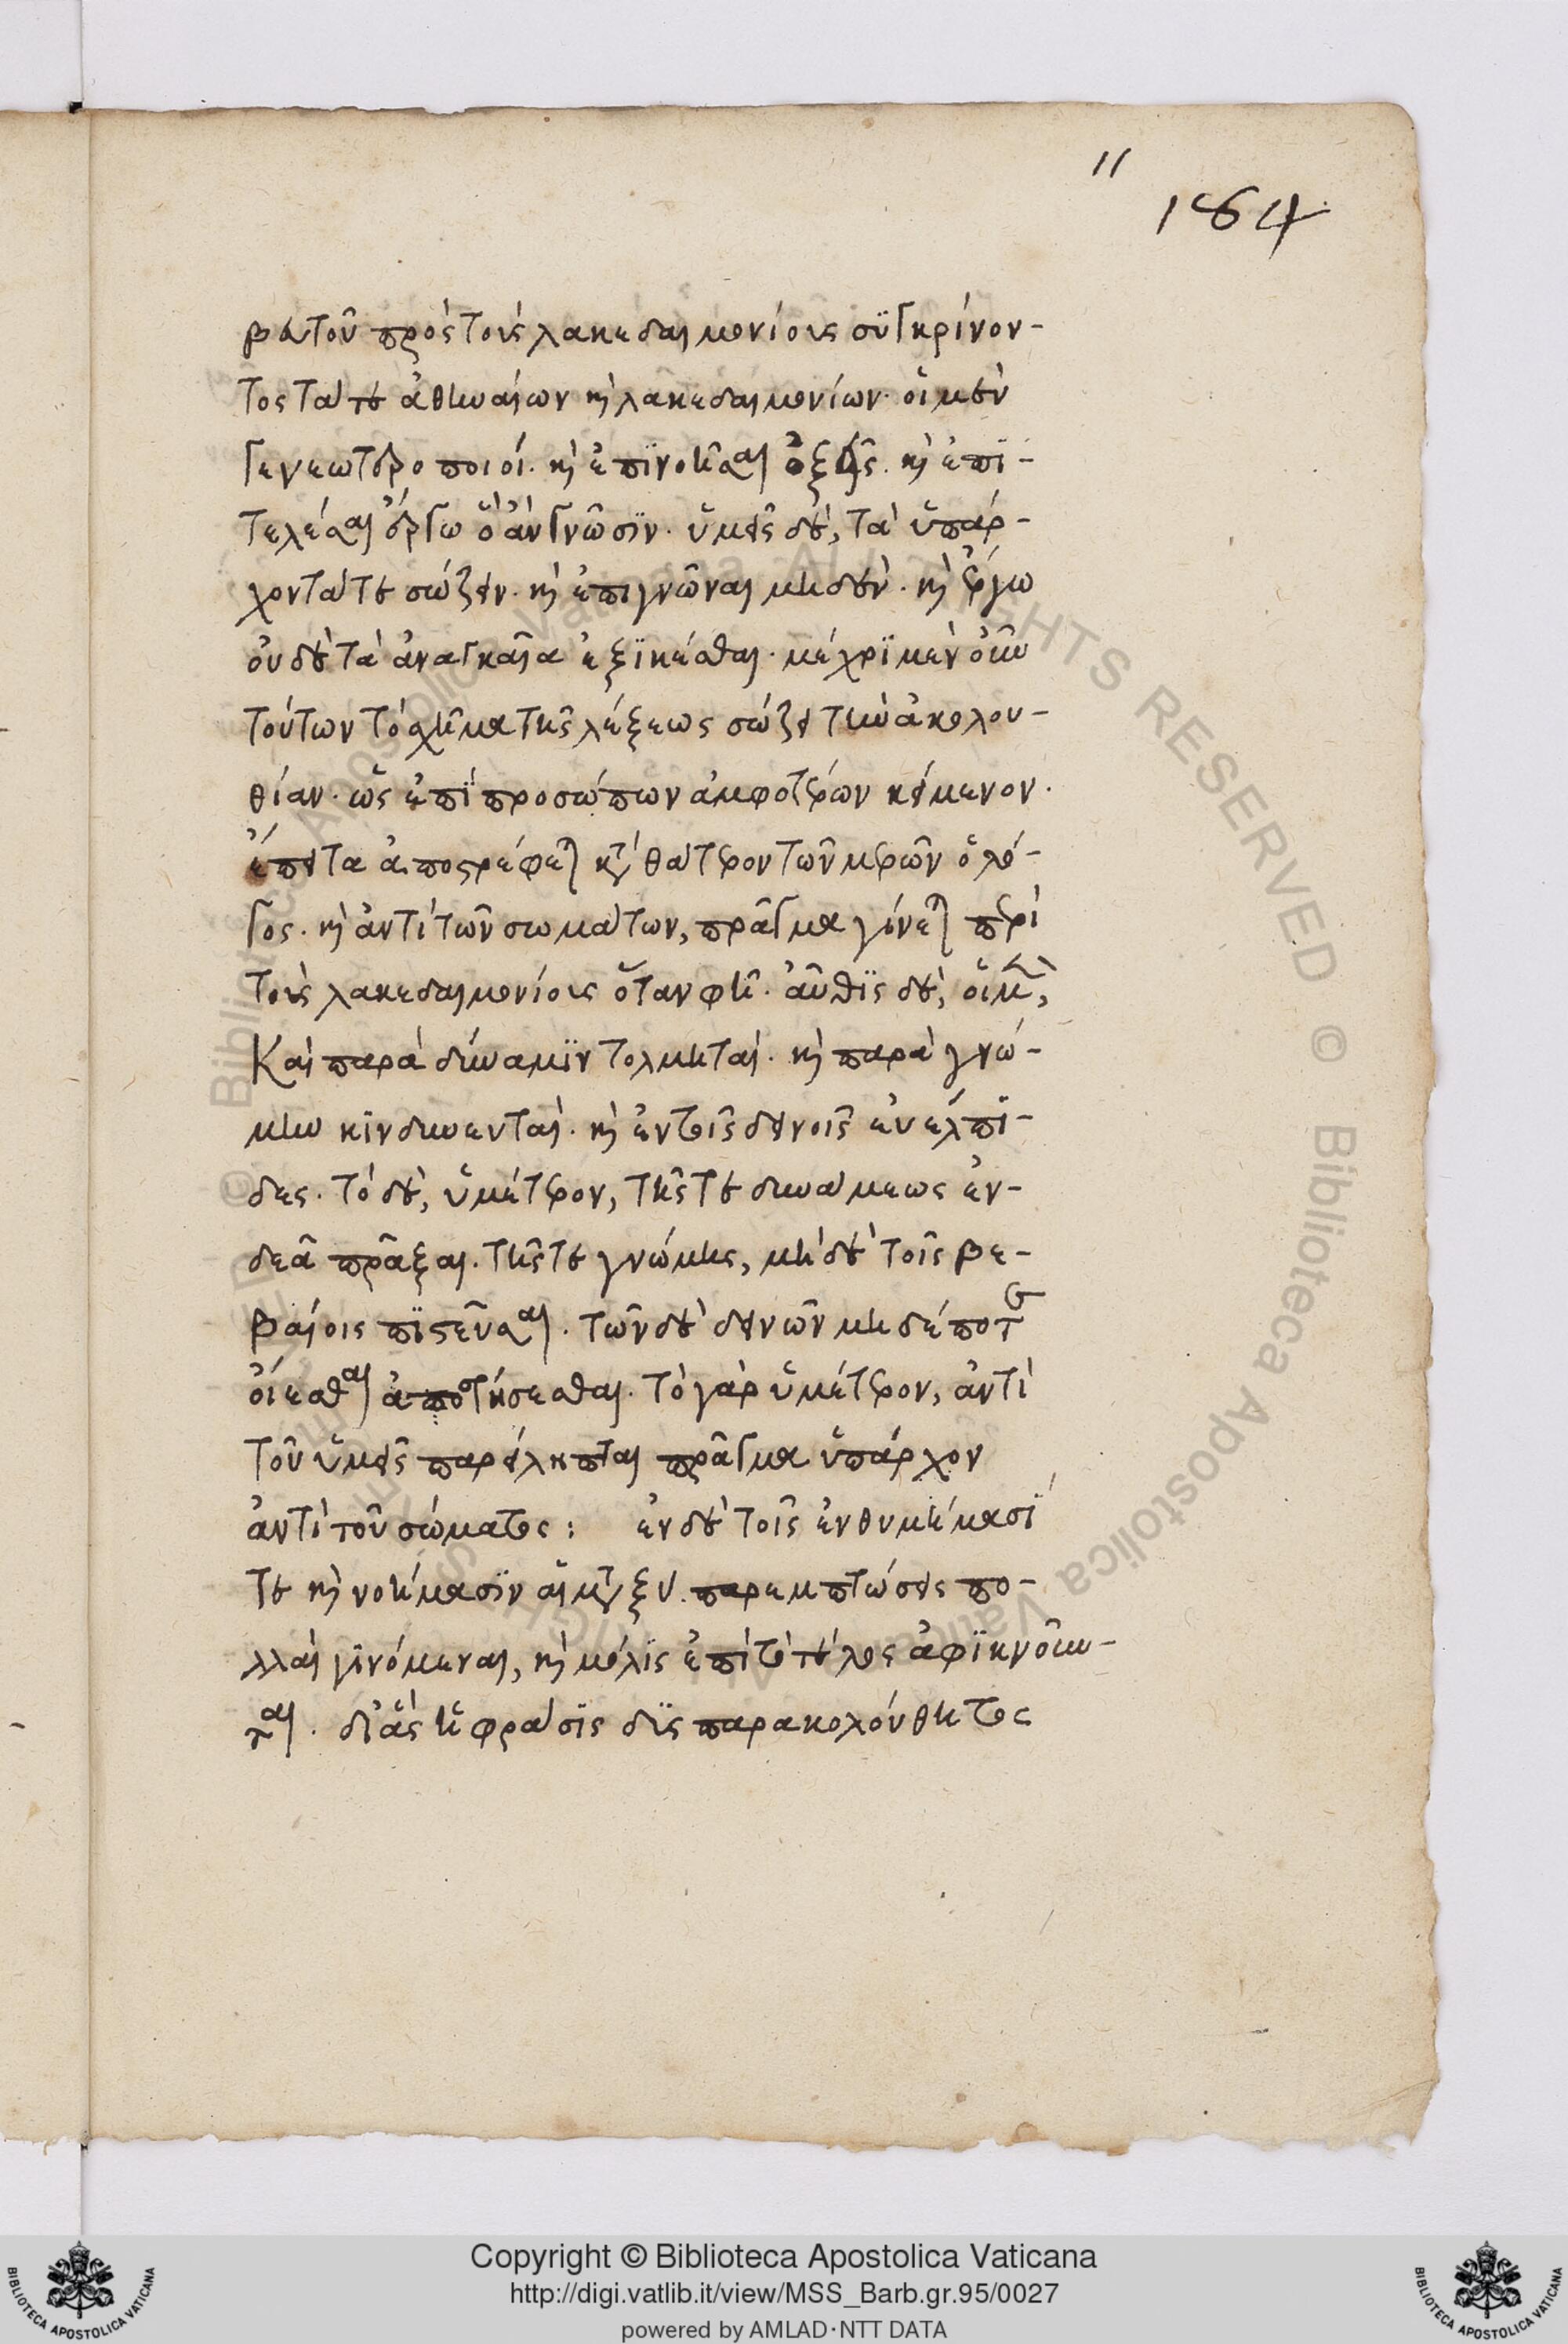 11
164
βευτοῦ πρὸς τοὺς λακεδαιμονίους συγκρίνον-
τος τά τε ἀθηναίων καὶ λακεδαιμονίων. οἱ μέν
γε νεωτεροποιοί. καὶ ἐπινοῆσαι ὀξεῖς. καὶ ἐπι-
τελέσαι ἔργω ὃ ἂν γνῶσιν. ὑμεῖς δὲ, τὰ ὑπάρ-
χοντά τε σώζειν. καὶ ἐπιγνῶναι μηδέν. καὶ ἔργω
οὐδὲ τὰ ἀναγκαῖα ἐξικέσθαι. μέχρι μὲν οὖν
τούτων τὸ σχῆμα τῆς λέξεως σώζει τὴν ἀκολου-
θίαν. ὡς ἐπὶ προσώπων ἀμφοτέρων κείμενον.
ἔπειτα ἀποστρέφεται κατὰ θάτερον τῶν μερῶν ὁ λό-
γος. καὶ ἀντὶ τῶν σωμάτων, πρᾶγμα γίνεται περὶ
τοὺς λακεδαιμονίους ὅταν φῆ. αὖθις δὲ, οἱ μὲν,
Καὶ παρὰ δύναμιν τολμηταί. καὶ παρὰ γνώ-
μην κινδυνευταί. καὶ ἐν τοῖς δεινοῖς εὐέλπι-
δες. τὸ δὲ, ὑμέτερον, τῆς τε δυνάμεως ἐν-
δεᾶ πρᾶξαι. τῆς τε γνώμης, μὴ δὲ τοῖς βε-
βαίοις πιστεῦσαι. τῶν δὲ δεινῶν μηδέποτε
οἴεσθαι ἀποστήσεσθαι. τὸ γὰρ ὑμέτερον, ἀντὶ
τοῦ ὑμεῖς παρείληπται πρᾶγμα ὑπάρχον
ἀντὶ τοῦ σώματος: ἐν δὲ τοῖς ἐνθυμήμασί
τε καὶ νοήμασιν αἱ μεταξὺ παρεμπτώσεις πο-
λλαὶ γινόμεναι, καὶ μόλις ἐπὶ τὸ τέλος ἀφικνοῦν-
ται. δι' ἃς ἡ φράσις δυσπαρακολούθητος
Copyright © Biblioteca Apostolica Vaticana
http://digi.vatlib.it/view/MSS_Barb.gr.95/0027
powered by AMLAD·NTT DATA